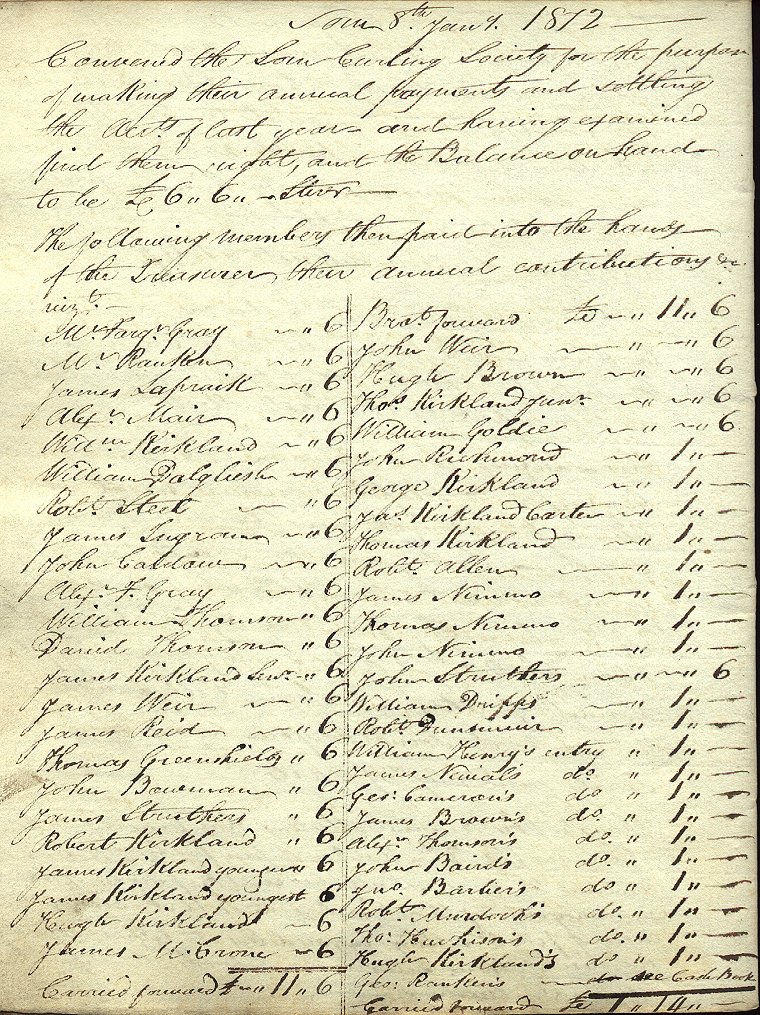 Sorn 8th Jany. 1812
Convened the Sorn Curling Society for the purpose
of making their annual payments and settling
the Accts. of last year and having examined
find them right, and the Balance on hand
to be £6 " 6 " - Ster.
The following members then paid into the hands
of the Treasurer their annual contributions &c.
vizt. -
Mr. Farqr. Gray - " 6
Mr. Ranken - " 6
James Lapraik - " 6
Alexr. Mair - " 6
Willm. Kirkland - " 6
William Dalgliesh - " 6
Robt. Steel - " 6
James Ingram - " 6
John Caldow - " 6
Alexr. F. Gray - " 6
William Thomson " 6
David Thomson " 6
James Kirkland Senr. - " 6
James Weir - " 6
James Reid - " 6
Thomas Greenshields " 6
John Bowman - " 6
James Struthers " 6
Robert Kirkland " 6
James Kirkland younger " 6
James Kirkland youngest 6
Hugh Kirkland - 6
James McCrone - 6
Carried forward £ - " 11 " 6
Brot. forward £ - " 11 " 6
John Weir - " - " 6
Hugh Brown - " - " 6
Thos. Kirkland Junr. - " - " 6
William Goldie - " - " 6
John Richmond - " 1 " -
George Kirkland - " 1 " -
Jas. Kirkland Carter - " 1 " -
Thomas Kirkland - " 1 " -
Robt. Allen - " 1 " -
James Nimmo - " 1 " -
Thomas Nimmo - " 1 " -
John Nimmo - " 1 " -
John Struthers - " - " 6
William Dripps - " 1 " -
Robt. Dunsmuir - " 1 " -
William Henry's entry " 1 " -
James do. " 1 " -
Geo: Cameron's do " 1 " -
James Brown's do. " 1 " -
Alexr. Thomson's do. " 1 " -
John Baird's do. " 1 " -
Jno. Barber's do " 1 " -
Robt. Murdoch's do. " 1 " -
Tho: Huchison's do. " 1 " -
Hugh Kirkland's do " 1 " -
Geo: Ranken's do see Cash Book
Carried forward £ 1 " 14 " -